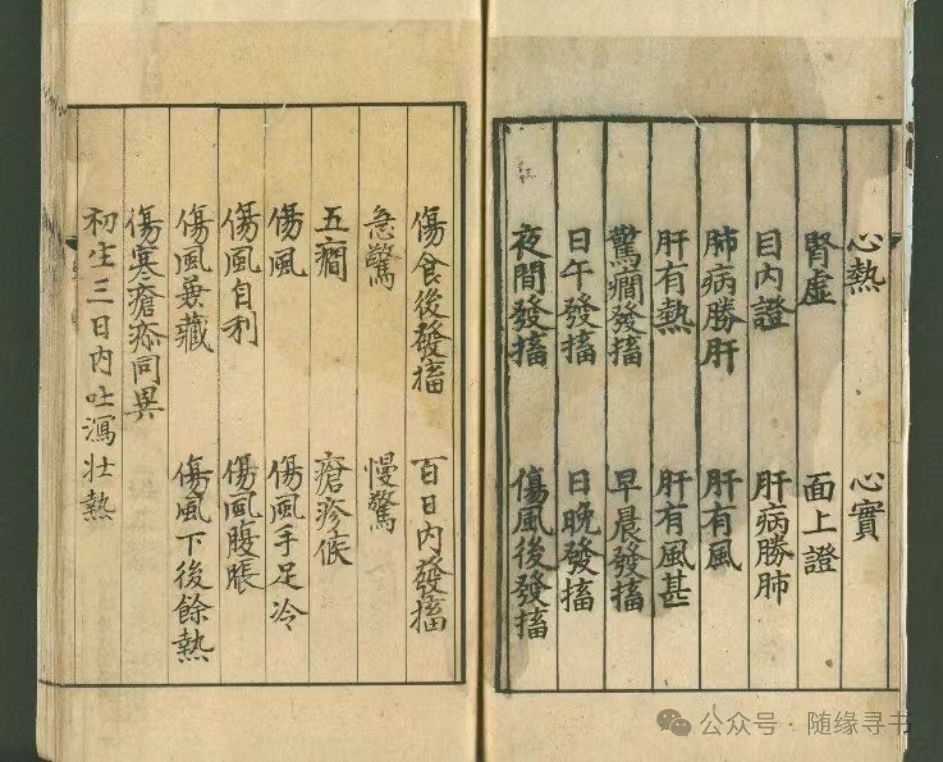 心熱 心實
腎虛 面上證
目内證 肝病勝肺
肺病勝肝 肝有風
肝有熱 肝有風甚
驚癇發搐 早晨發搐
日午發搐 日晚發搐
夜間發搐 傷風後發搐
傷食後發搐 百日内發搐
急驚 慢驚
五癇 瘡疹候
傷風 傷風手足冷
傷風自利 傷風腹脹
傷風兼藏 傷風下後餘熱
傷寒瘡疹同異
初生三日内吐瀉壯熱
公众号 · 随缘寻书